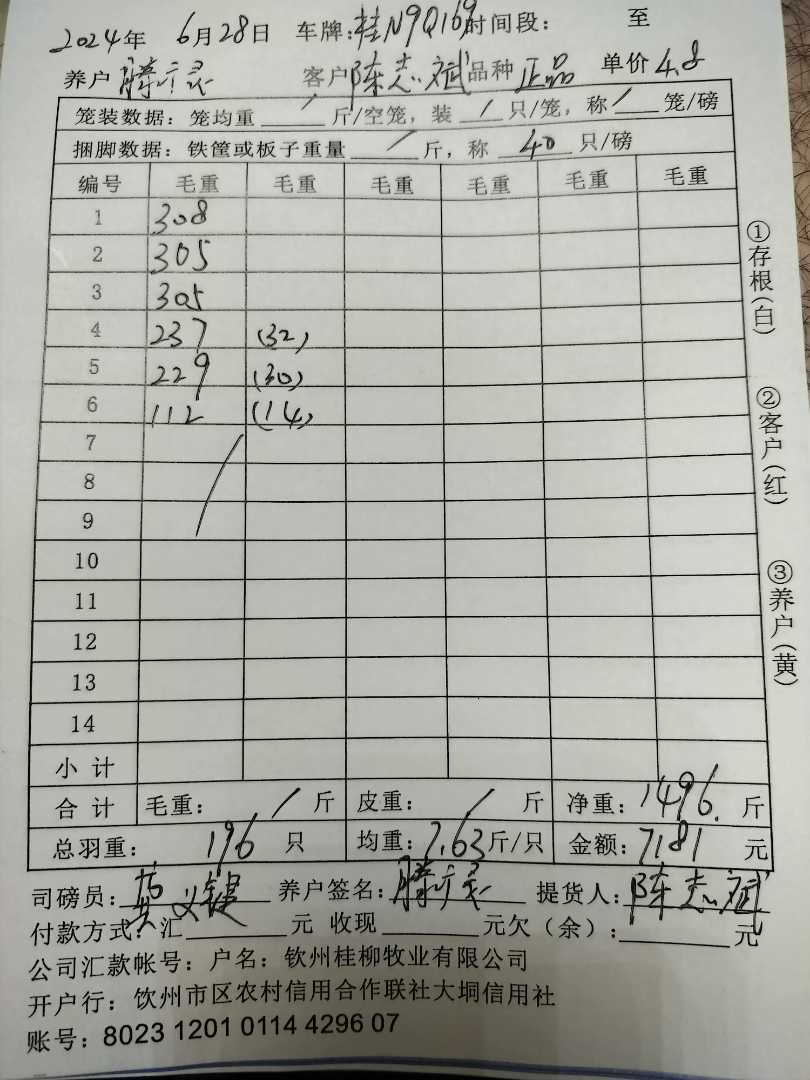 2024年 6月28日 车牌:桂N9Q169时间段: 至
养户 滕 灵 客户 陈志斌 品种 正品 单价 4.8
笼装数据: 笼均重 / 斤/空笼, 装 / 只/笼, 称 / 笼/磅
捆脚数据: 铁筐或板子重量 / 斤, 称 40 只/磅
编号 毛重 毛重 毛重 毛重 毛重 毛重
1 308
2 305
3 305
4 237 (32)
5 229 (30)
6 112 (14)
7
8
9
10
11
12
13
14
小计
合计 毛重: / 斤 皮重: / 斤 净重: 1496. 斤
总羽重: 196 只 均重: 7.63 斤/只 金额: 7181 元
司磅员: 黄 键 养户签名: 滕 灵 提货人: 陈志斌
付款方式: 汇 元 收现 元欠(余): 元
公司汇款帐号: 户名: 钦州桂柳牧业有限公司
开户行: 钦州市区农村信用合作联社大垌信用社
账号: 8023 1201 0114 4296 07
①存根(白)
②客户(红)
③养户(黄)